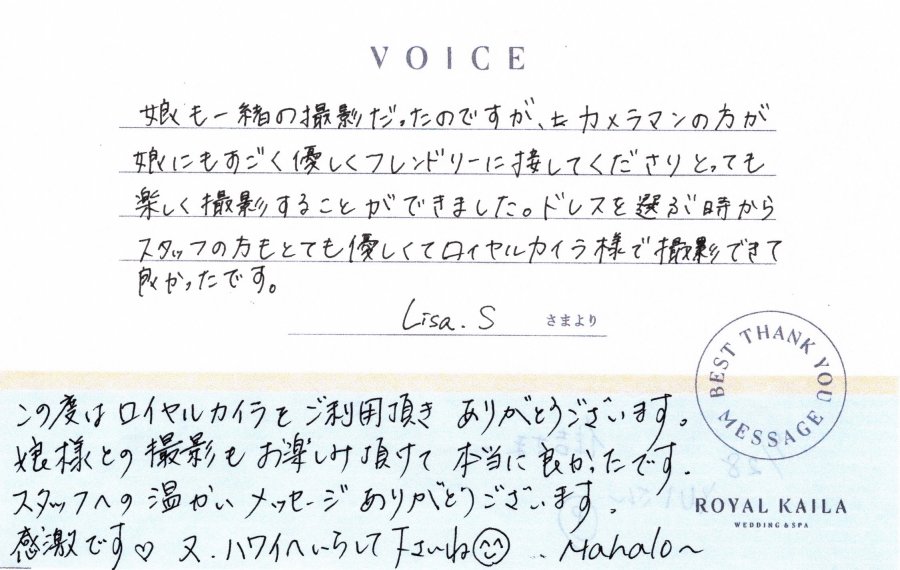 VOICE
娘も一緒の撮影だったのですが、カメラマンの方が
娘にもすごく優しくフレンドリーに接してくださりとっても
楽しく撮影することができました。ドレスを選ぶ時から
スタッフの方もとても優しくてロイヤルカイラ様で撮影できて
良かったです。
Lisa.S さまより
BEST THANK YOU MESSAGE
この度はロイヤルカイラをご利用頂き ありがとうございます。
娘様との撮影もお楽しみ頂けて 本当に良かったです.
スタッフへの温かい メッセージ ありがとうございます.
感激です♡ 又、ハワイへいらして下さいね☺ .. Mahalo~
ROYAL KAILA
WEDDING & SPA